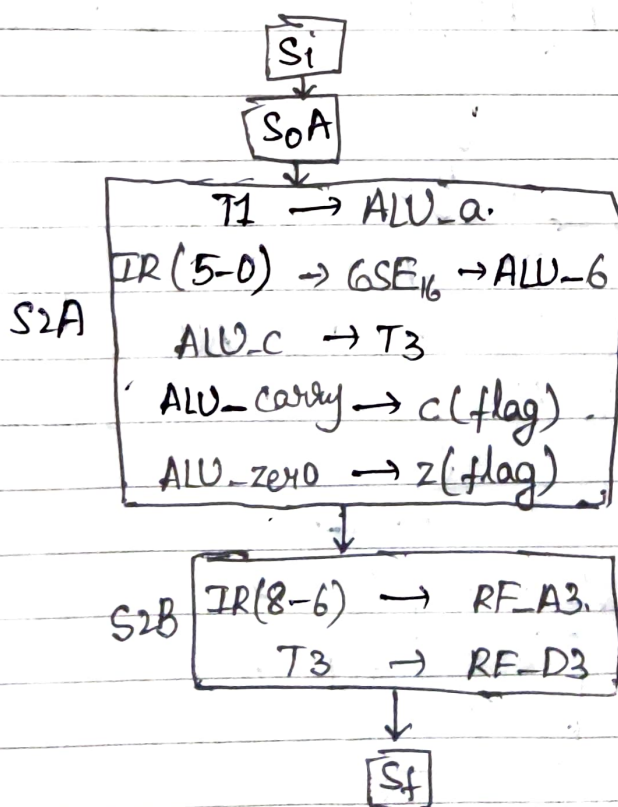 Si
S0A
T1 → ALU_a.
IR(5-0) → 6SE16 → ALU_6
S2A
ALU_c → T3
ALU_carry → c(flag).
ALU_zero → z(flag)
IR(8-6) → RF_A3.
S2B
T3 → RF_D3
Sf